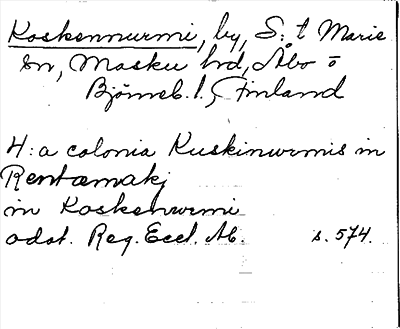 Koskennurmi, by, S:t Marie
sn, Masku hd, Åbo o
Björneb. l., Finland
4: a colonia Kuskinurmis in
Rentamakj
in Koskenurmi
odat. Reg. Eccl. Ab. s. 574.